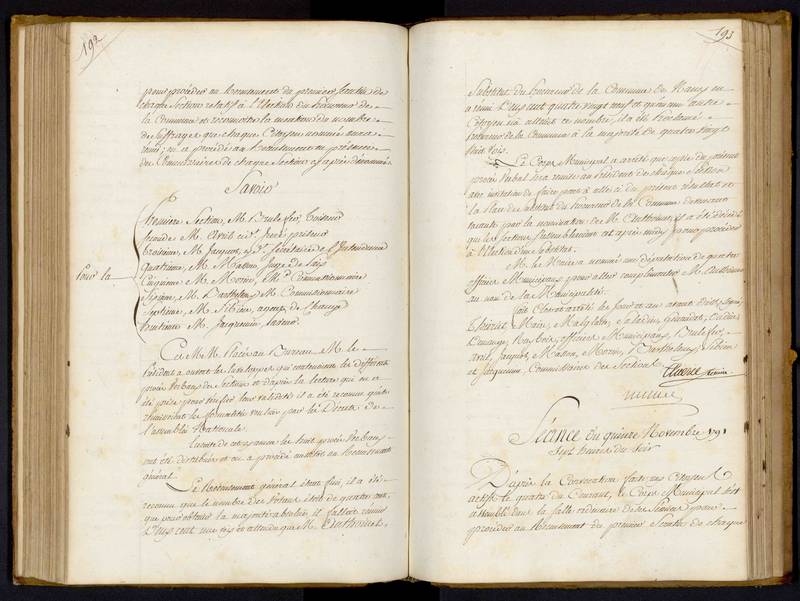 192
pour procéder au recensement du premier scrutin de
chaque Section relatif à l'Election du Procureur de
la Commune et reconnoitre la mention du nombre
de suffrages que chaque Citoyen nommé aura
réuni; on a procédé au recensement en présence
des Commissaires de chaque Section ci après dénommés
Savoir
Pour la
Premiere Section, M. Brulefer,
seconde M. Avril
troisieme, M. Jacquot, Secrétaire de l'Intendance
Quatrieme, M. Masson, Juge de Paix
Cinquieme M. Morin, Md. Commissionnaire
Sixieme, M. Barthelemy M. Commissionnaire
Septieme, M. Sibien, agent de Change
huitieme M. Jacquemin,
Ces MM. Placés au Bureau M. le
Président a ouvert les enveloppes qui contenoient les différents
procès Verbaux de Section et d'après la lecture qui en a
été prise pour vérifier leur validité il a été reconnu qu'ils
réunissoient les formalités voulues par les Décrets de
l'assemblée Nationale.
La suite de cet examen les huit procès Verbaux
ont été distribués et on a procédé au recensement
général.
Le Recensement général étant fini, il a été
reconnu que le nombre des Votans étoit de quatre cent,
que pour obtenir la majorité absolue, il falloit réunir
Deux cent une voix et attendu que M.
193
Substitut du Procureur de la Commune de Nancy en
a réuni Deux cent quatre vingt neuf et qu'aucun autre
Citoyen n'a atteint ce nombre, il a été Proclamé
Procureur de la Commune à la majorité de quatre vingt
huit voix.
Le Corps Municipal a arrêté que copie du présent
procès Verbal sera remise au Président de chaque Section
avec invitation de faire part à elle ci du présent résultat et
la Place de Substitut du Procureur de la Commune devenant
vacante par la nomination de M. il a été décidé
que les Sections s'assembleroient cet après midy pour procéder
à l'Election
M. le Maire a nommé une députation de quatre
officiers Municipaux pour aller complimenter M.
au nom de la Municipalité.
fait Clos et arrêté les jour et an avant dits,
Maire, Malglaive, Saladin,
officiers Municipaux, Brulefer,
Avril, Jacquot, Masson, Morin, Barthelemy, Sibien
et Jacquemin, Commissaires des Sections.
Séance du quinze Novembre 1791
Sept heures du Soir
D'après la Convocation faite des Citoyens
actifs le quatre du Courant, le Corps Municipal s'est
assemblé dans la salle ordinaire de ses Séances pour
procéder au Recensement du premier Scrutin de chaque